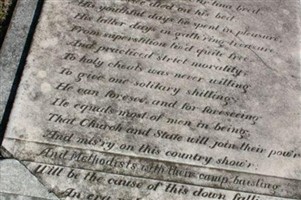 died me his bed
His youthful days he spent in pleasure
His latter days in gath'ring treasure
From superstition lived quite free
And practiced strict morality
To holy cheats was never willing
To give one solitary shilling
He can foresee, and for foreseeing
He equals most of men in being
That Church and State will join their pow'r
And mis'ry on this country show'r
And Methodists with their camp bawling
Will be the cause of this down falling
An era